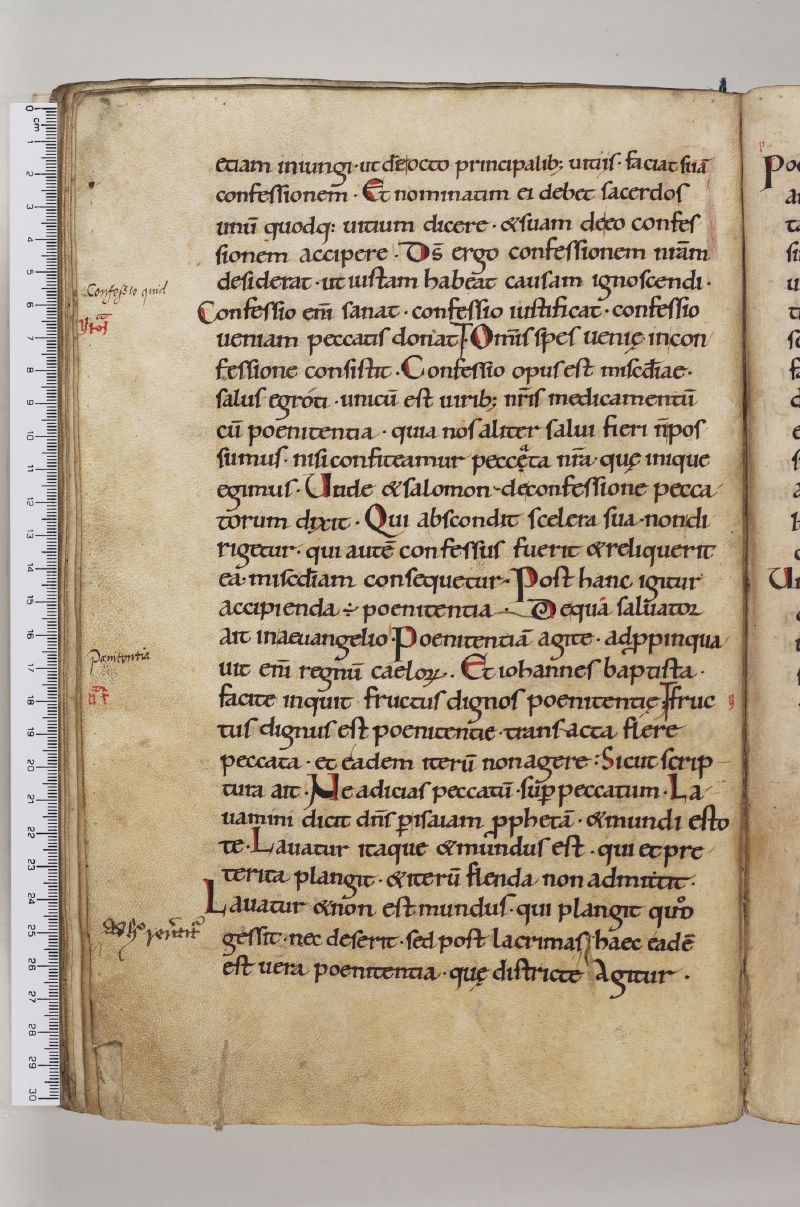 etiam iniungi · ut de octo principalib; uitiis · faciat suā
confessionem · Et nominatim ei debet sacerdos
unū quodq; uitium dicere · & suam de eo confes
sionem accipere · D̄s ergo confessionem nr̄am
desiderat · ut iustam habeat causam ignoscendi ·
Confessio quid
Confessio em̄ sanat · confessio iustificat · confessio
ueniam peccatis donat · Om̄is spes uenię in con
fessione consistit · Confessio opus est misc̄diae ·
salus egroti · unicū est uirib; nr̄is medicamentū
cū poenitentia · quia nos aliter salui fieri n̄ pos
sumus · nisi confiteamur peccata nr̄a · quę inique
egimus · Unde & salomon de confessione pecca
torum dixit · Qui abscondit scelera sua · non di
rigetur · qui autē confessus fuerit & reliquerit
ea · misc̄diam consequetur · Post hanc igitur
accipienda ÷ poenitentia · De qua saluator
Pœnitentia
ait in aeuangelio · Poenitentiā agite · adp̱pinqua
uit em̄ regnū caeloꝝ · Et iohannes baptista ·
facite inquit fructus dignos poenitentię · fruc
tus dignus est poenitentie · transacta flere
peccata · et eadem iterū non agere : Sicut scrip
tura ait · Ne adicias peccatū · sup̄ peccatum · La
uamini dicit dn̄s ꝑ isaiam ꝓphetā · & mundi esto
te · Lauatur itaque & mundus est · qui et pre
terita plangit · & iterū flenda non admittit ·
Lauatur & non est mundus · qui plangit quo̊d
gessit · nec deserit · sed post lacrimas haec eadē
est uera poenitentia · quę districte Agitur ·